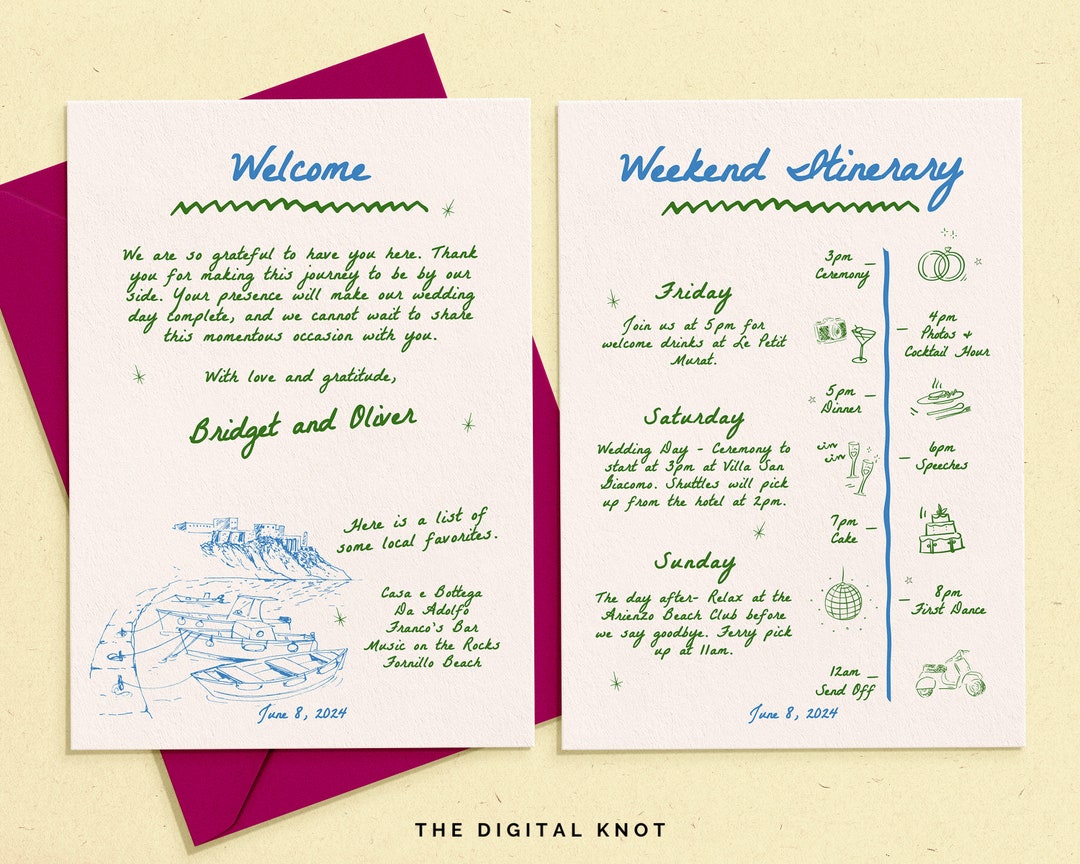 Welcome
We are so grateful to have you here. Thank
you for making this journey to be by our
side. Your presence will make our wedding
day complete, and we cannot wait to share
this momentous occasion with you.
With love and gratitude,
Bridget and Oliver
Here is a list of
some local favorites.
Casa e Bottega
Da Adolfo
Franco's Bar
Music on the Rocks
Fornillo Beach
June 8, 2024
Weekend Itinerary
Friday
Join us at 5pm for
welcome drinks at Le Petit
Murat.
Saturday
Wedding Day - Ceremony to
start at 3pm at Villa San
Giacomo. Shuttles will pick
up from the hotel at 2pm.
Sunday
The day after- Relax at the
Arienzo Beach Club before
we say goodbye. Ferry pick
up at 11am.
3pm
Ceremony
4pm
Photos +
Cocktail Hour
5pm
Dinner
6pm
Speeches
7pm
Cake
8pm
First Dance
12am
Send Off
June 8, 2024
THE DIGITAL KNOT